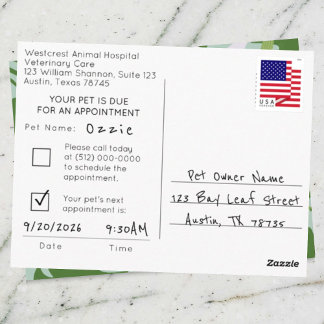 Westcrest Animal Hospital
Veterinary Care
123 William Shannon, Suite 123
Austin, Texas 78745
YOUR PET IS DUE
FOR AN APPOINTMENT
Pet Name: Ozzie
Please call today
at (512) 000-0000
to schedule the
appointment.
Your pet's next
appointment is:
9/20/2026 9:30AM
Date Time
USA
Pet Owner Name
123 Bay Leaf Street
Austin, TX 78735
Zazzle